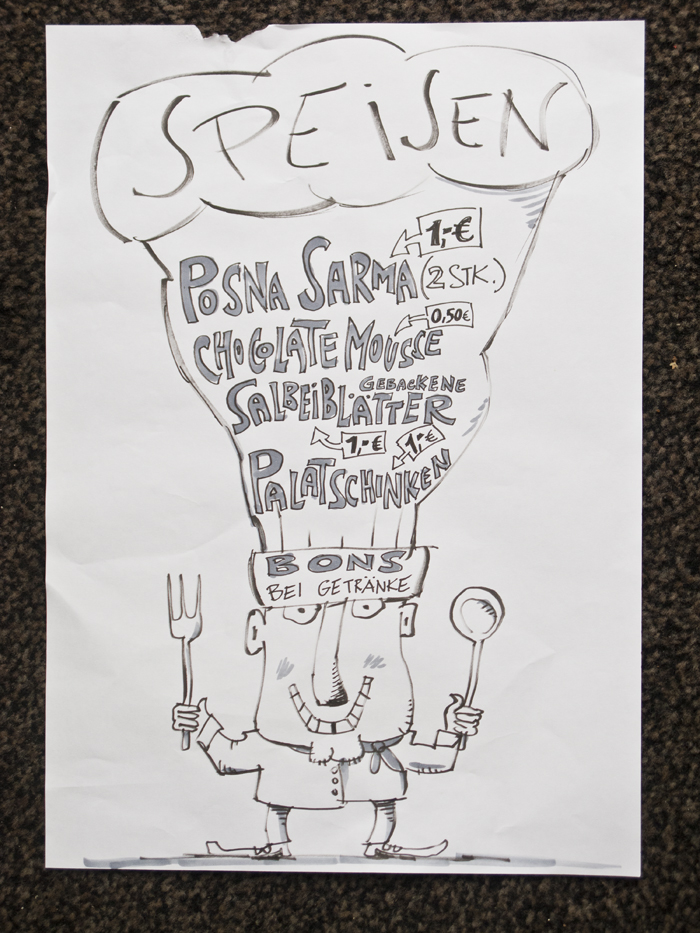 SPEiSEN
1,-€
POSNA SARMA (2 STK.)
0,50€
CHOCOLATE MOUSSE
GEBACKENE
SALBEIBLÄTTER
1,-€ 1,-€
PALATSCHINKEN
BONS
BEI GETRÄNKE